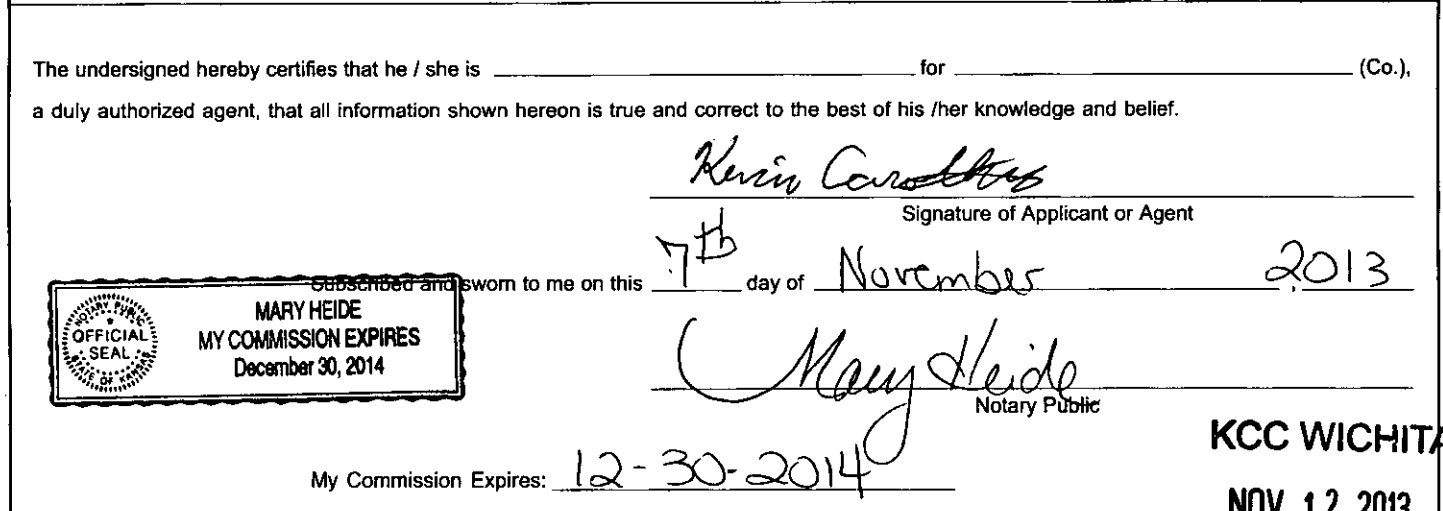 The undersigned hereby certifies that he / she is for (Co.),
a duly authorized agent, that all information shown hereon is true and correct to the best of his /her knowledge and belief.
Kevin Carothers
Signature of Applicant or Agent
Subscribed and sworn to me on this 7th day of November 2013
NOTARY PUBLIC
OFFICIAL
SEAL
STATE OF KANSAS
MARY HEIDE
MY COMMISSION EXPIRES
December 30, 2014
Mary Heide
Notary Public
KCC WICHITA
My Commission Expires: 12-30-2014
NOV 12 2013